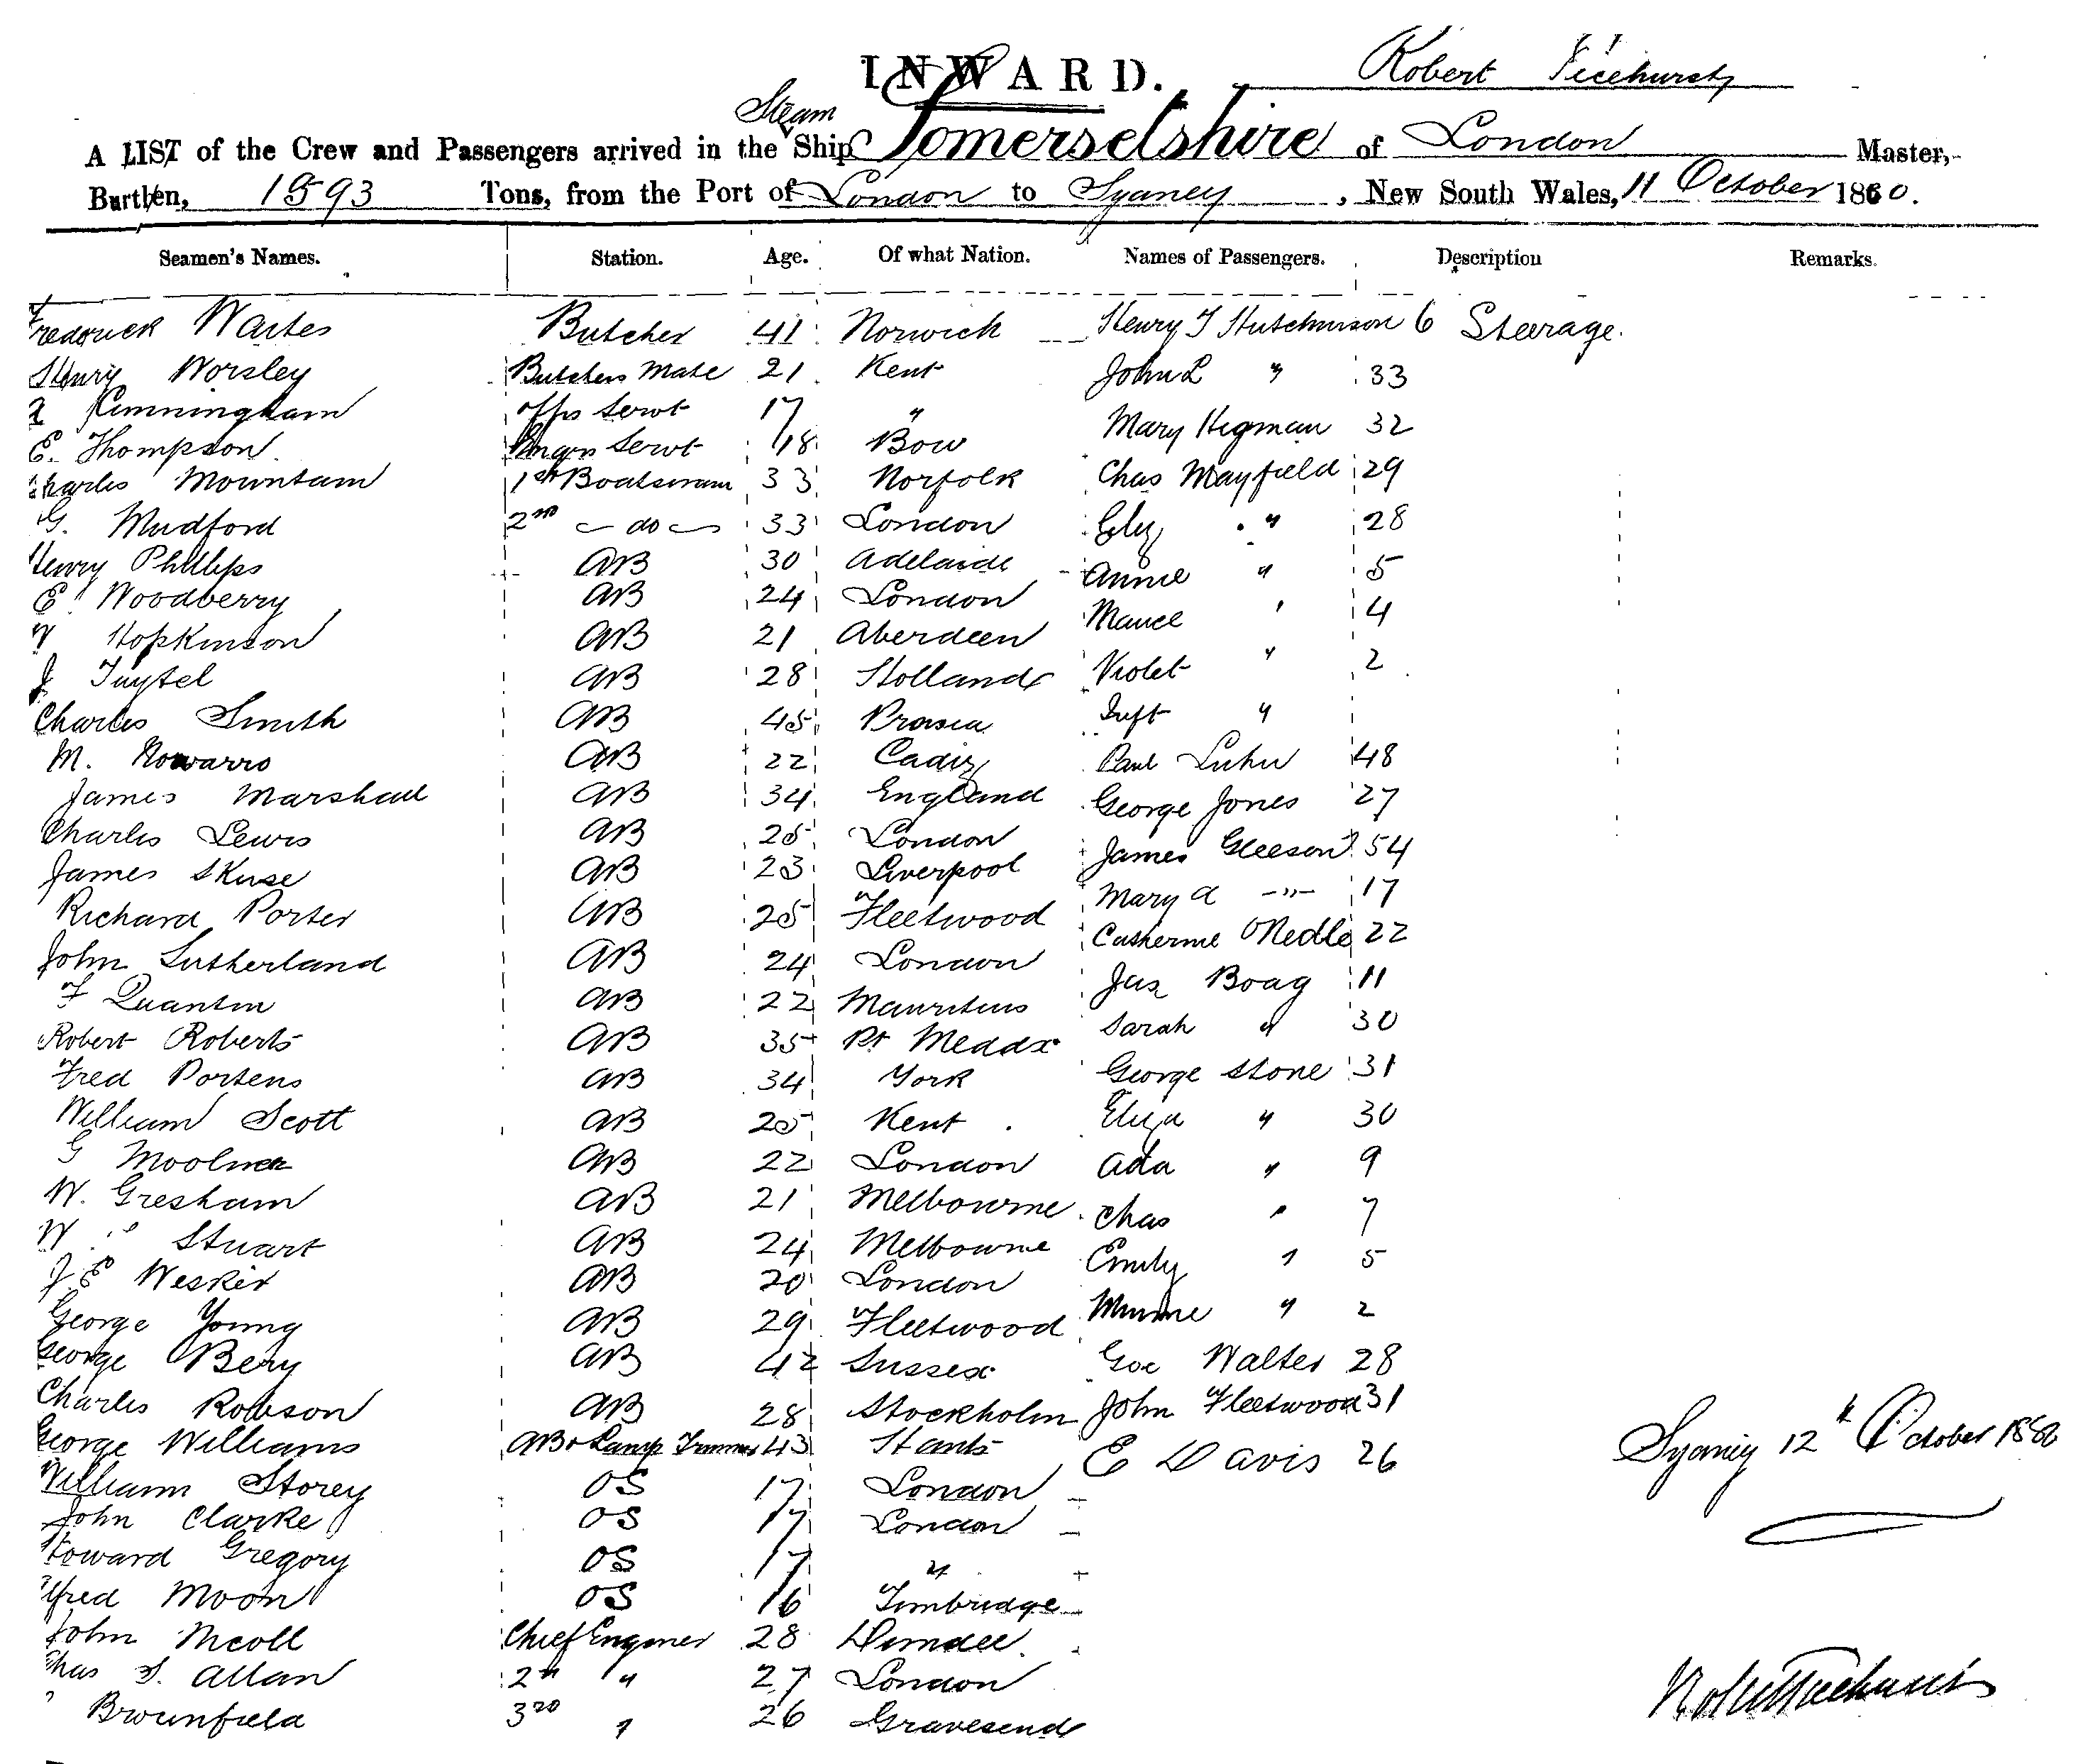 INWARD. Robert Ticehurst
Steam
A LIST of the Crew and Passengers arrived in the Ship Somersetshire of London Master,
Burthen, 1593 Tons, from the Port of London to Sydney, New South Wales, 11 October 1880.
Seamen's Names. Station. Age. Of what Nation. Names of Passengers. Description Remarks.
Frederick Waites Butcher 41 Norwich Henry J Hutchinson 6 Steerage.
Henry Worsley Butchers Mate 21 Kent John L " 33
Cunningham offrs Servt 17 " Mary Hegman 32
E. Thompson Servt 18 Bow Chas Mayfield 29
Charles Mountain 1st Boatswain 33 Norfolk
G. Mudford 2nd do 33 London Eliz " 28
Henry Phillips AB 30 Adelaide Annie " 5
E Woodberry AB 24 London 4
W Hopkinson AB 21 Aberdeen Violet " 2
J Tuytel AB 28 Holland Inft "
Charles Smith AB 45 Prosia
M. Nowarro AB 22 Cadiz Paul Luhu 48
James Marshall AB 34 England George Jones 27
Charles Lewis AB 25 London James Gleeson 54
James Skuse AB 23 Liverpool Mary A " 17
Richard Porter AB 25 Fleetwood Catherine 22
John Sutherland AB 24 London Jas Boag 11
F Quantin AB 22 Mauritius Sarah " 30
Robert Roberts AB 35 Pt Meddx George Stone 31
Fred Portens AB 34 York
William Scott AB 25 Kent Eliza " 30
G AB 22 London Ada " 9
W. Gresham AB 21 Melbourne Chas " 7
W Stuart AB 24 Melbourne Emily " 5
J E Wesker AB 20 London
George Young AB 29 Fleetwood Minnie " 2
George Bery AB 42 Sussex Geo Walter 28
Charles Robson AB 28 Stockholm John Fleetwood 31
George Williams AB & Lamp Trimmer 43 Hants E Davis 26 Sydney 12th October 1880
William Storey OS 17 London
John Clarke OS 17 London
Howard Gregory OS 17 "
Alfred Moon OS 16 Tunbridge
John Nicoll Chief Engineer 28 Dundee
Chas S. Allan 2nd " 27 London Robt Ticehurst
Brownfield 3rd " 26 Gravesend